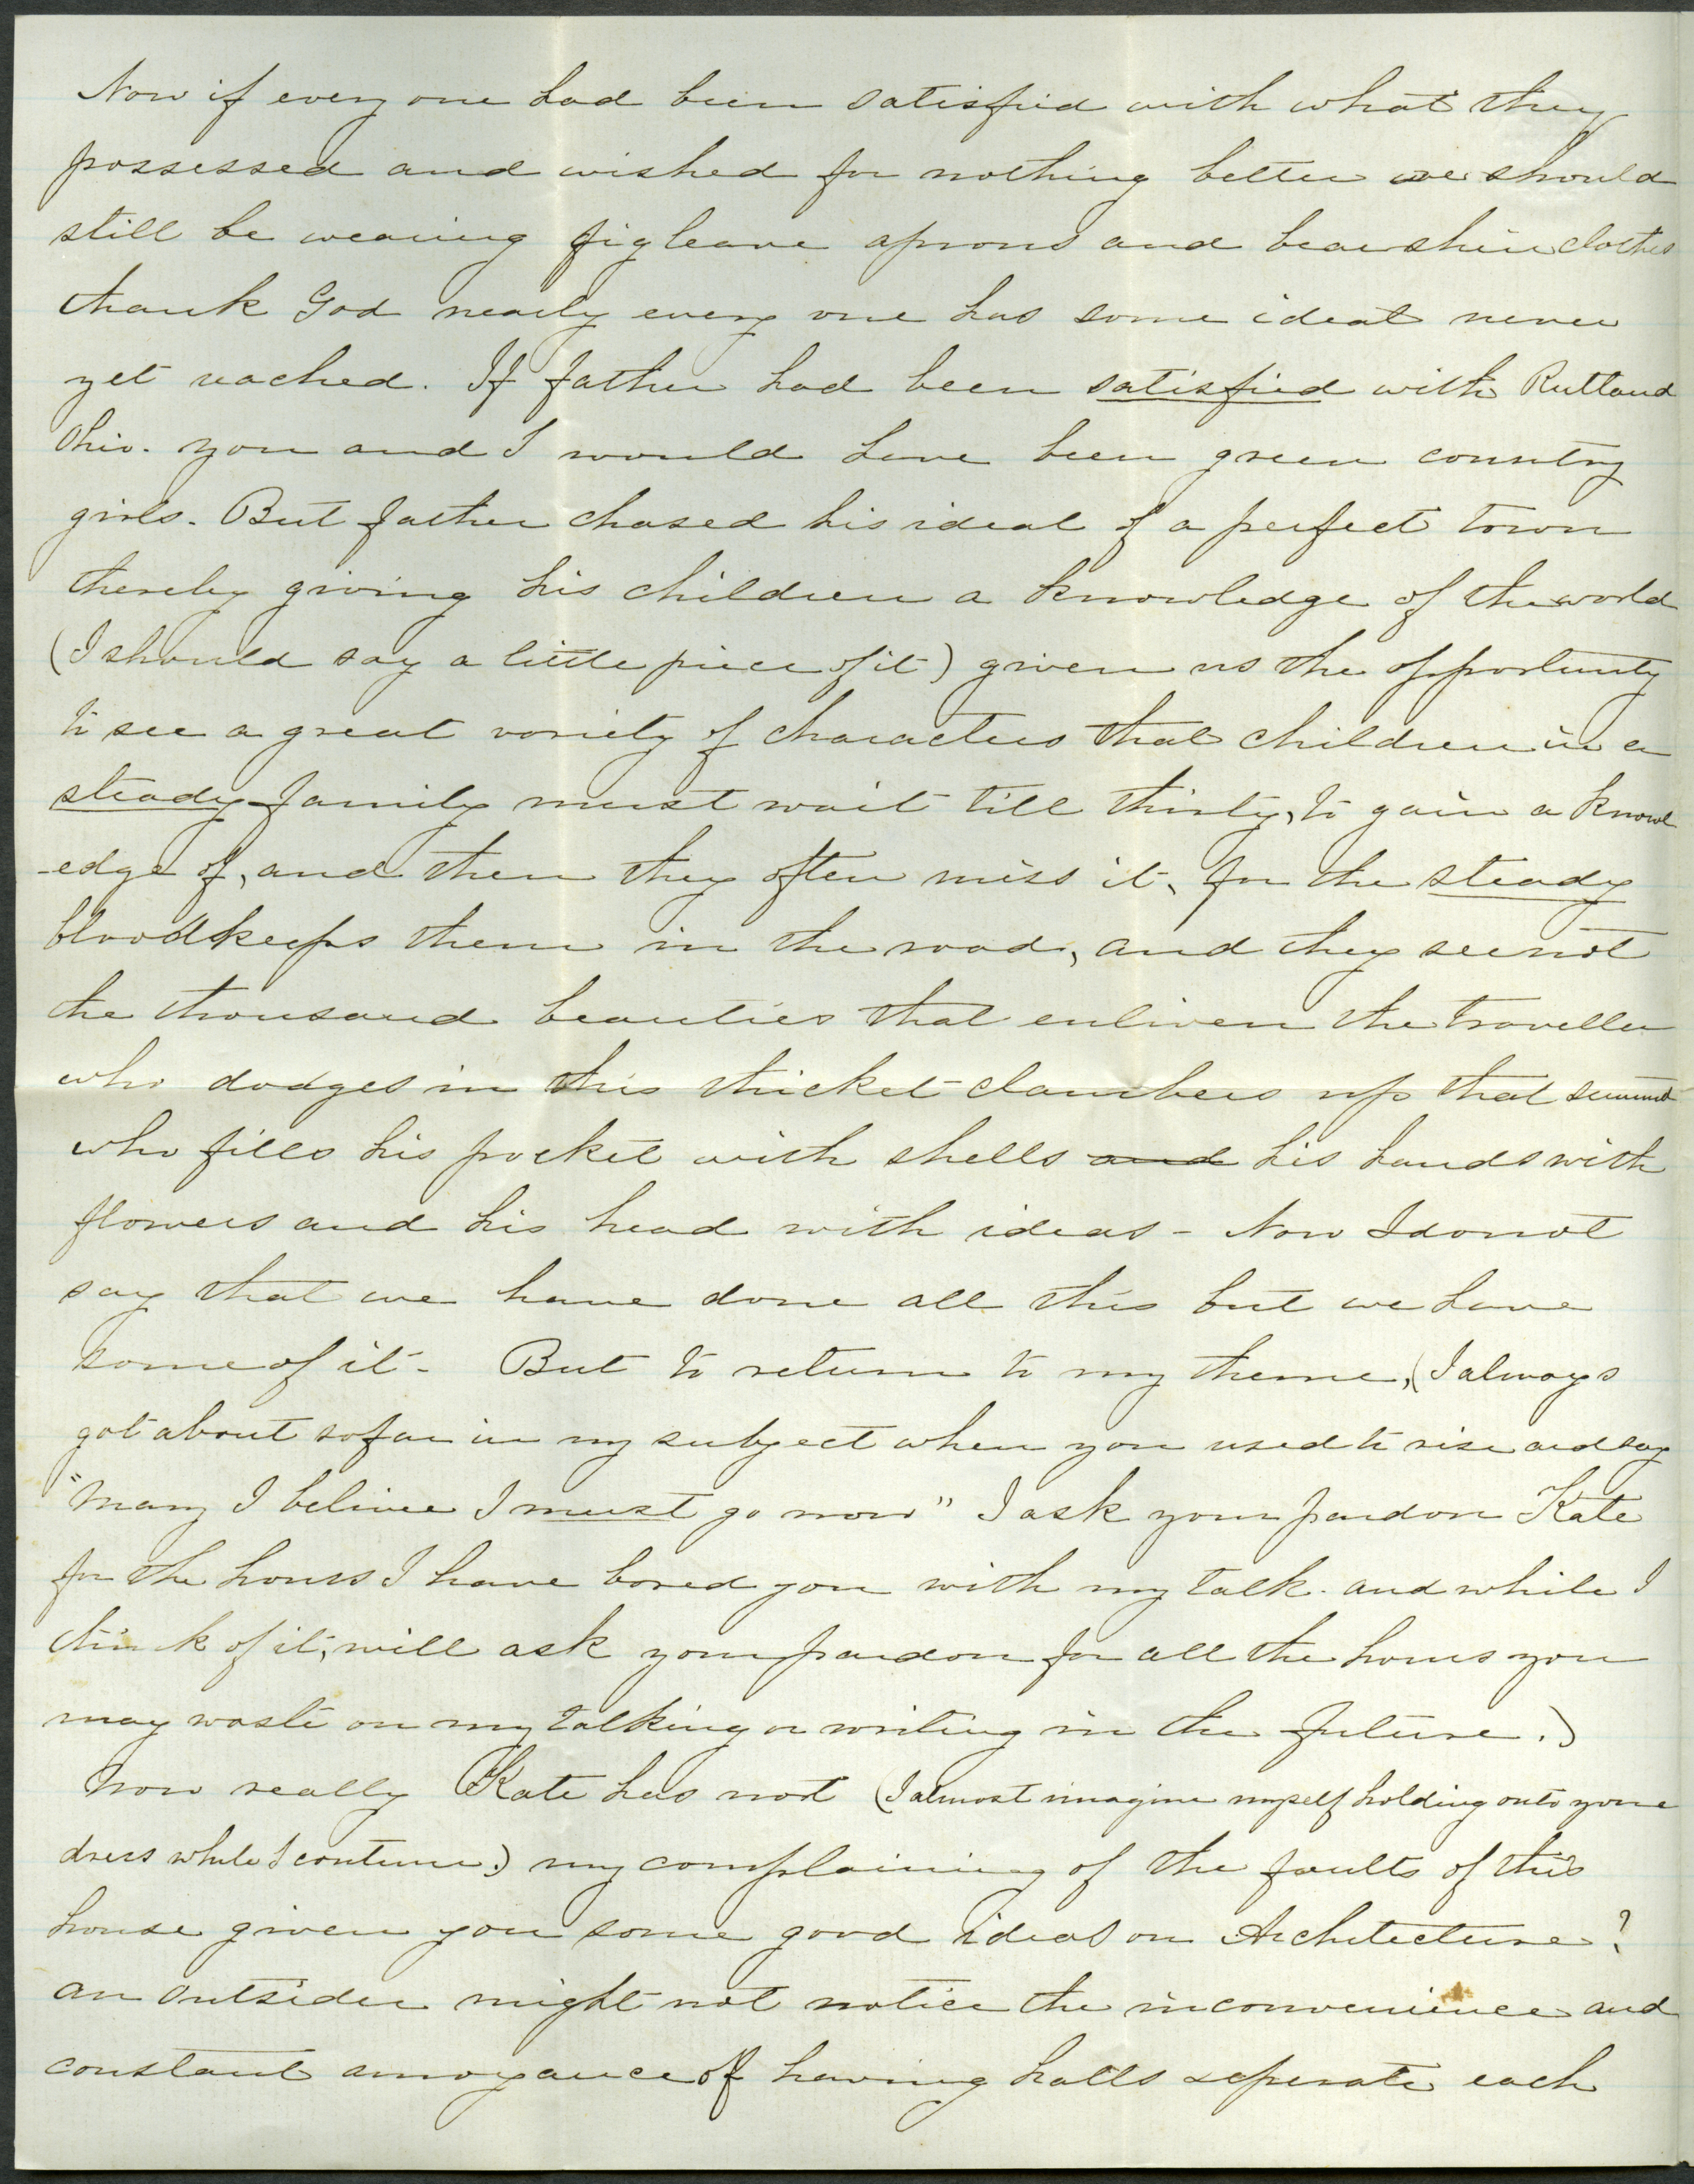 Now if every one had been satisfied with what they
possessed and wished for nothing better we should
still be wearing figleave aprons and bearskin clothes
thank God nearly every one has some ideal never
yet reached. If father had been satisfied with Rutland
Ohio. you and I would have been green country
girls. But father chased his ideal of a perfect town
thereby giving his children a knowledge of the world
(I should say a little piece of it) given us the opportunity
to see a great variety of characters that children in a
steady family must wait till thirty, to gain a knowl
-edge of, and then they often miss it, for the steady
blood keeps them in the road, and they see not
the thousand beauties that enliven the traveller
who dodges in this thicket - clambers up that summit
who fills his pocket with shells and his hands with
flowers and his head with ideas - Now I do not
say that we have done all this but we have
some of it - But to return to my theme, (I always
got about so far in my subject when you used to rise and say
"Mary I believe I must go now" I ask your pardon Kate
for the hours I have bored you with my talk. and while I
think of it, will ask your pardon for all the hours you
may waste on my talking or writing in the future.)
Now really Kate has not (I almost imagine myself holding onto your
dress while I continue.) my complaining of the faults of this
house given you some good ideas on Architecture?
an outsider might not notice the inconvenience and
constant annoyance of having halls seperate each